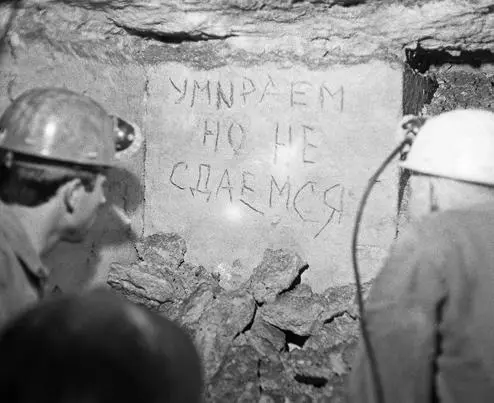 УМИРАЕМ
НО НЕ
СДАЕМСЯ